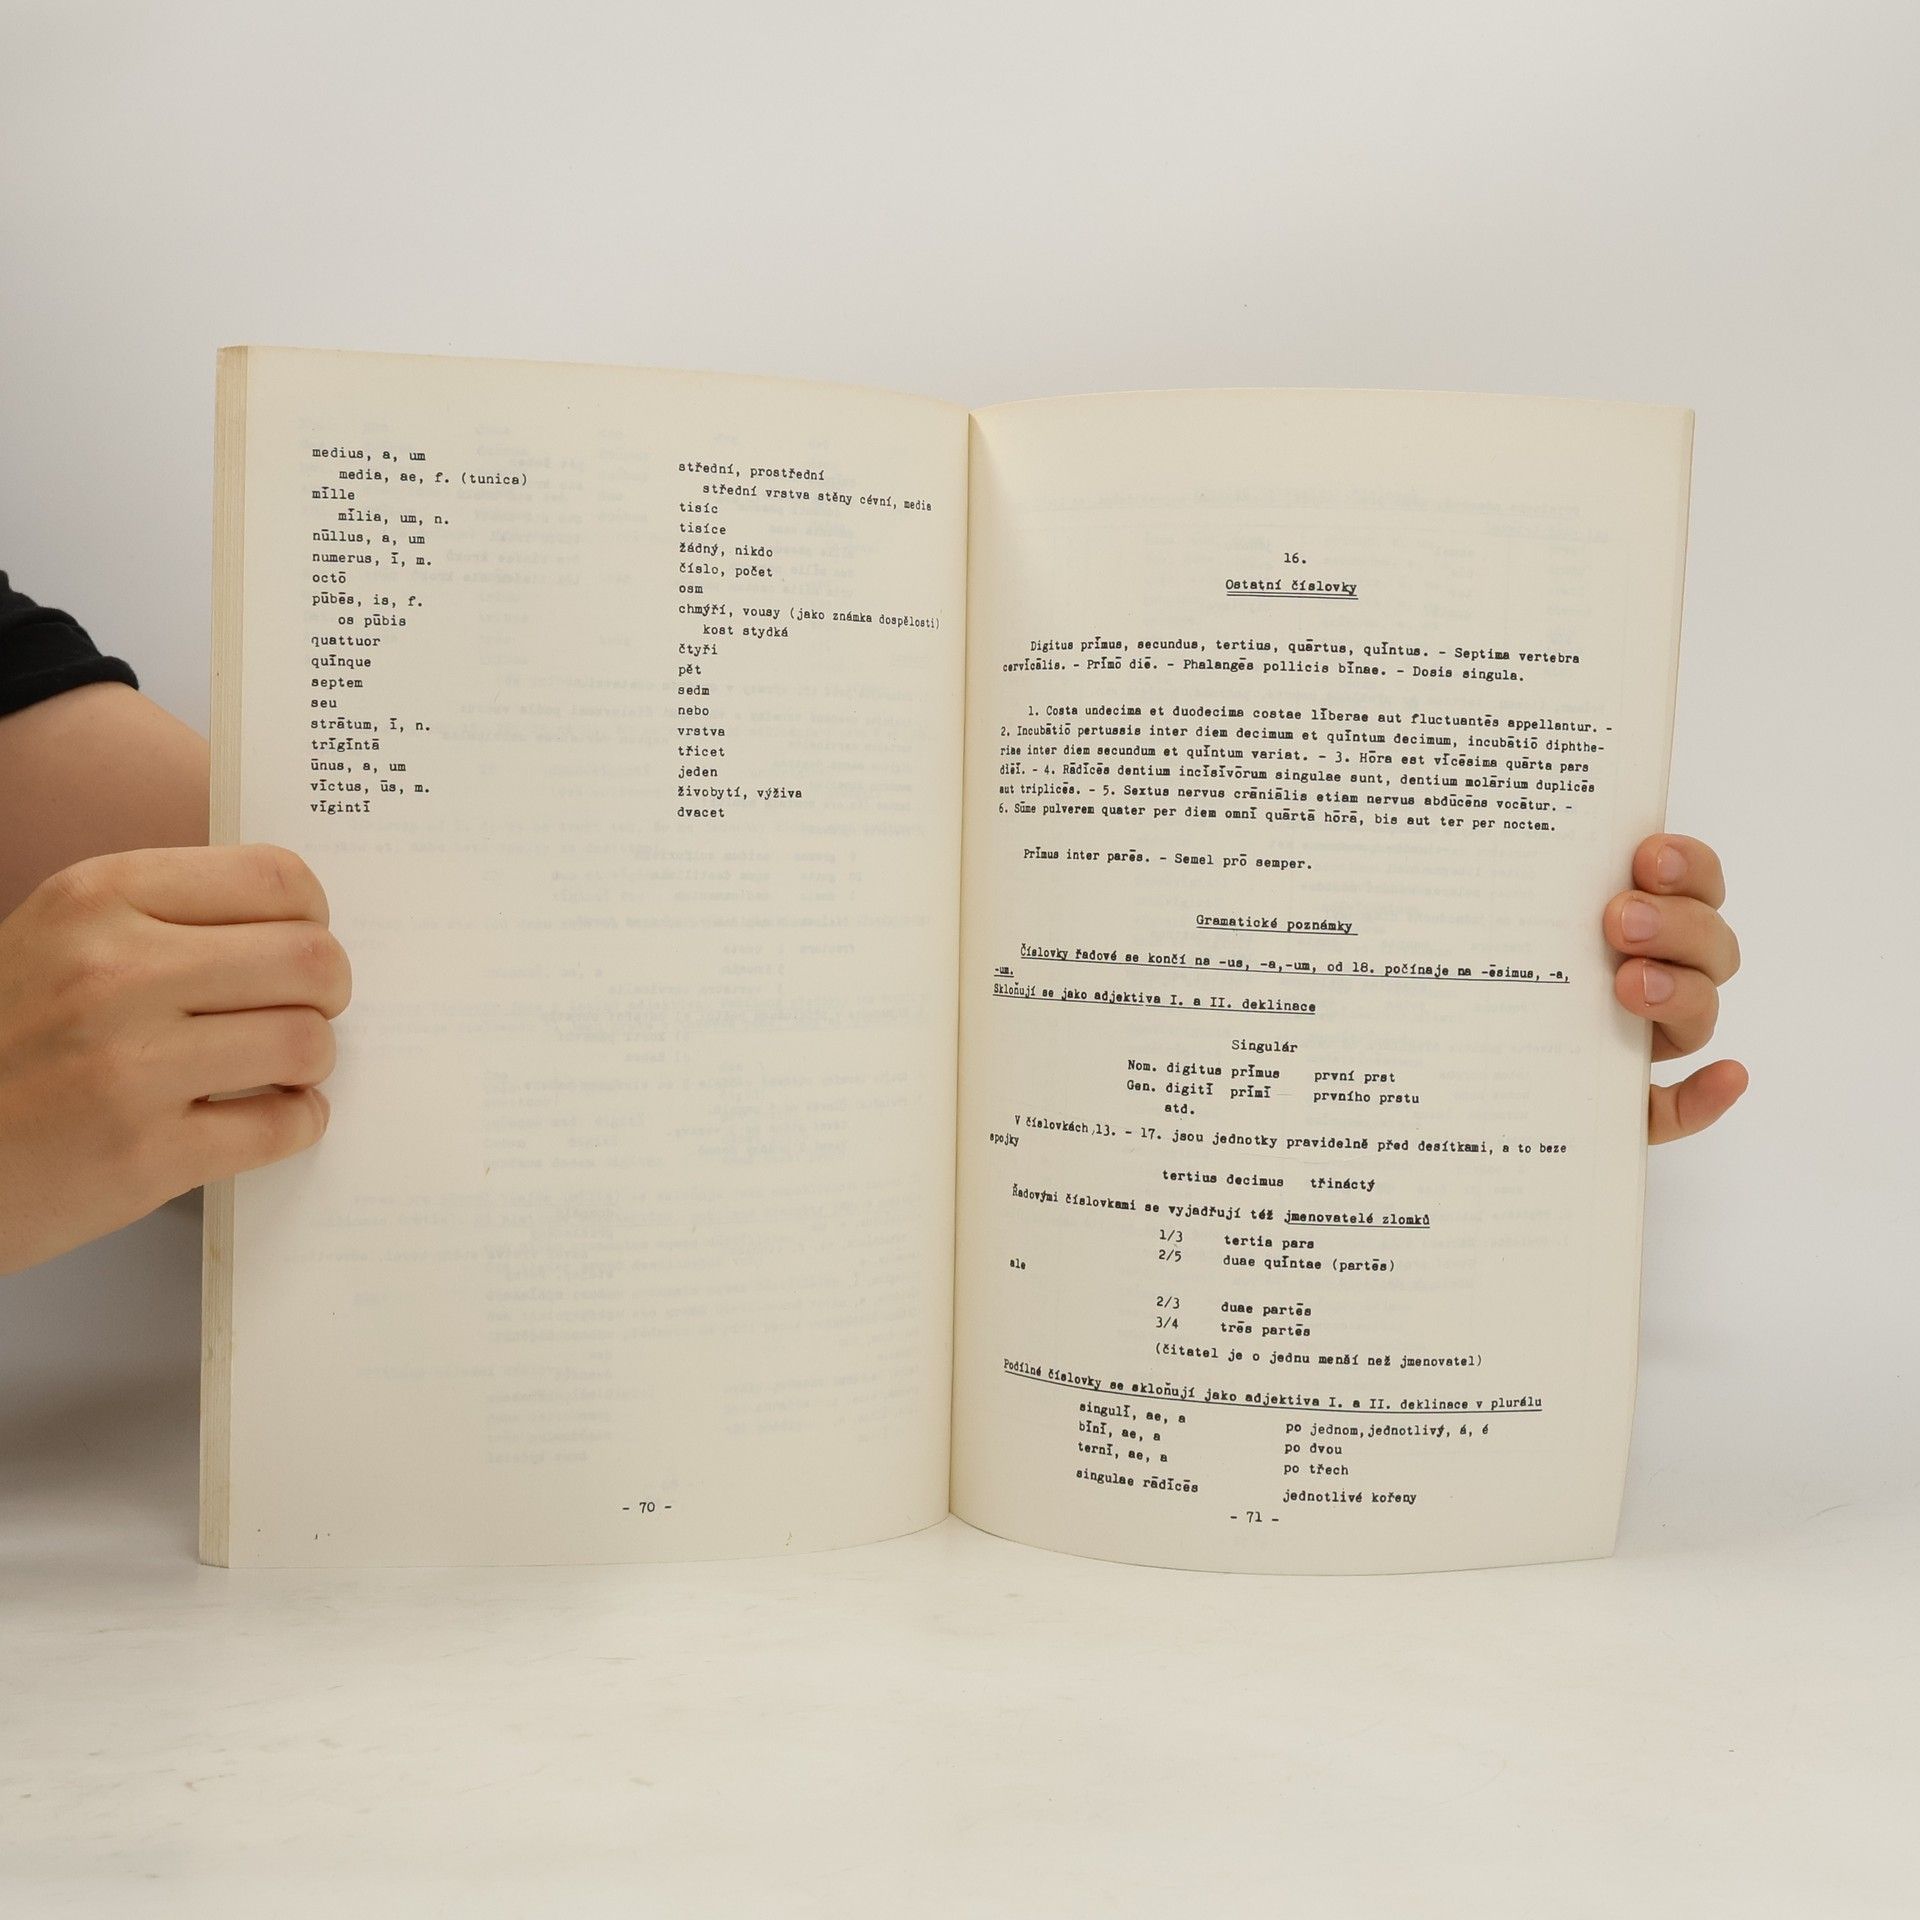 medius, a, um
media, ae, f. (tunica)
mīlle
mīlia, um, n.
nūllus, a, um
numerus, ī, m.
octō
pūbēs, is, f.
os pūbis
quattuor
quīnque
septem
seu
strātum, ī, n.
trīgintā
ūnus, a, um
vīctus, ūs, m.
vīgintī
střední, prostřední
střední vrstva stěny cévní, media
tisíc
tisíce
žádný, nikdo
číslo, počet
osm
chmýří, vousy (jako známka dospělosti)
kost stydká
čtyři
pět
sedm
nebo
vrstva
třicet
jeden
živobytí, výživa
dvacet
- 70 -
16.
Ostatní číslovky
Digitus prīmus, secundus, tertius, quārtus, quīntus. - Septima vertebra
cervīcālis. - Prīmō diē. - Phalangēs pollicis bīnae. - Dosis singula.
1. Costa undecima et duodecima costae līberae aut fluctuantēs appellantur. -
2. Incubātiō pertussis inter diem decimum et quīntum decimum, incubātiō diphthe-
riae inter diem secundum et quīntum variat. - 3. Hōra est vīcēsima quārta pars
diēī. - 4. Rādīcēs dentium incīsīvōrum singulae sunt, dentium molārium duplicēs
aut triplicēs. - 5. Sextus nervus crāniālis etiam nervus abdūcēns vocātur. -
6. Sūme pulverem quater per diem omnī quārtā hōrā, bis aut ter per noctem.
Prīmus inter parēs. - Semel prō semper.
Gramatické poznámky
Číslovky řadové se končí na -us, -a,-um, od 18. počínaje na -ēsimus, -a,
-um.
Skloňují se jako adjektiva I. a II. deklinace
Singulár
Nom. digitus prīmus první prst
Gen. digitī prīmī prvního prstu
atd.
V číslovkách 13. - 17. jsou jednotky pravidelně před desítkami, a to beze
spojky
tertius decimus třináctý
Řadovými číslovkami se vyjadřují též jmenovatelé zlomků
1/3 tertia pars
2/5 duae quīntae (partēs)
ale
2/3 duae partēs
3/4 trēs partēs
(čitatel je o jednu menší než jmenovatel)
Podílné číslovky se skloňují jako adjektiva I. a II. deklinace v plurálu
singulī, ae, a po jednom, jednotlivý, á, é
bīnī, ae, a po dvou
ternī, ae, a po třech
singulae rādīcēs jednotlivé kořeny
- 71 -